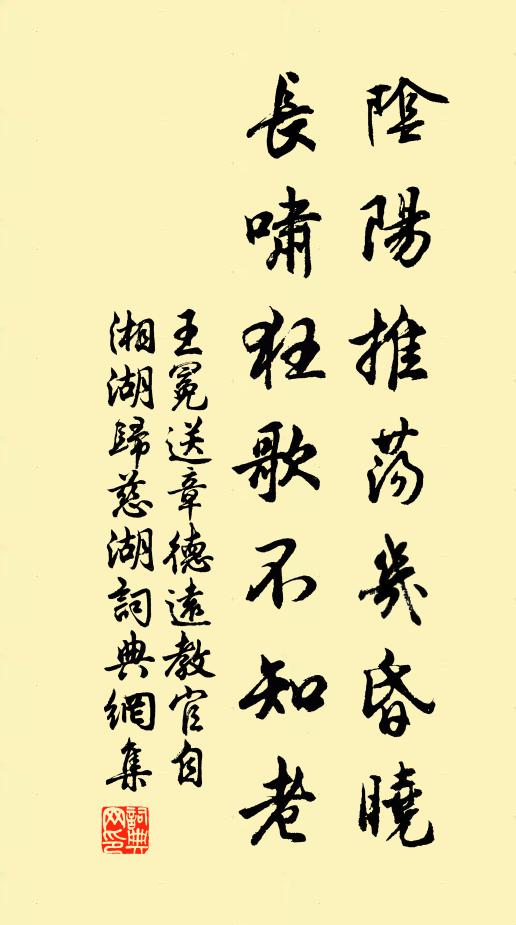 陰陽推蕩幾昏曉
長嘯狂歌不知老
王冕送章德遠教官自
湘湖歸慈湖詞典網集
詞典
网印